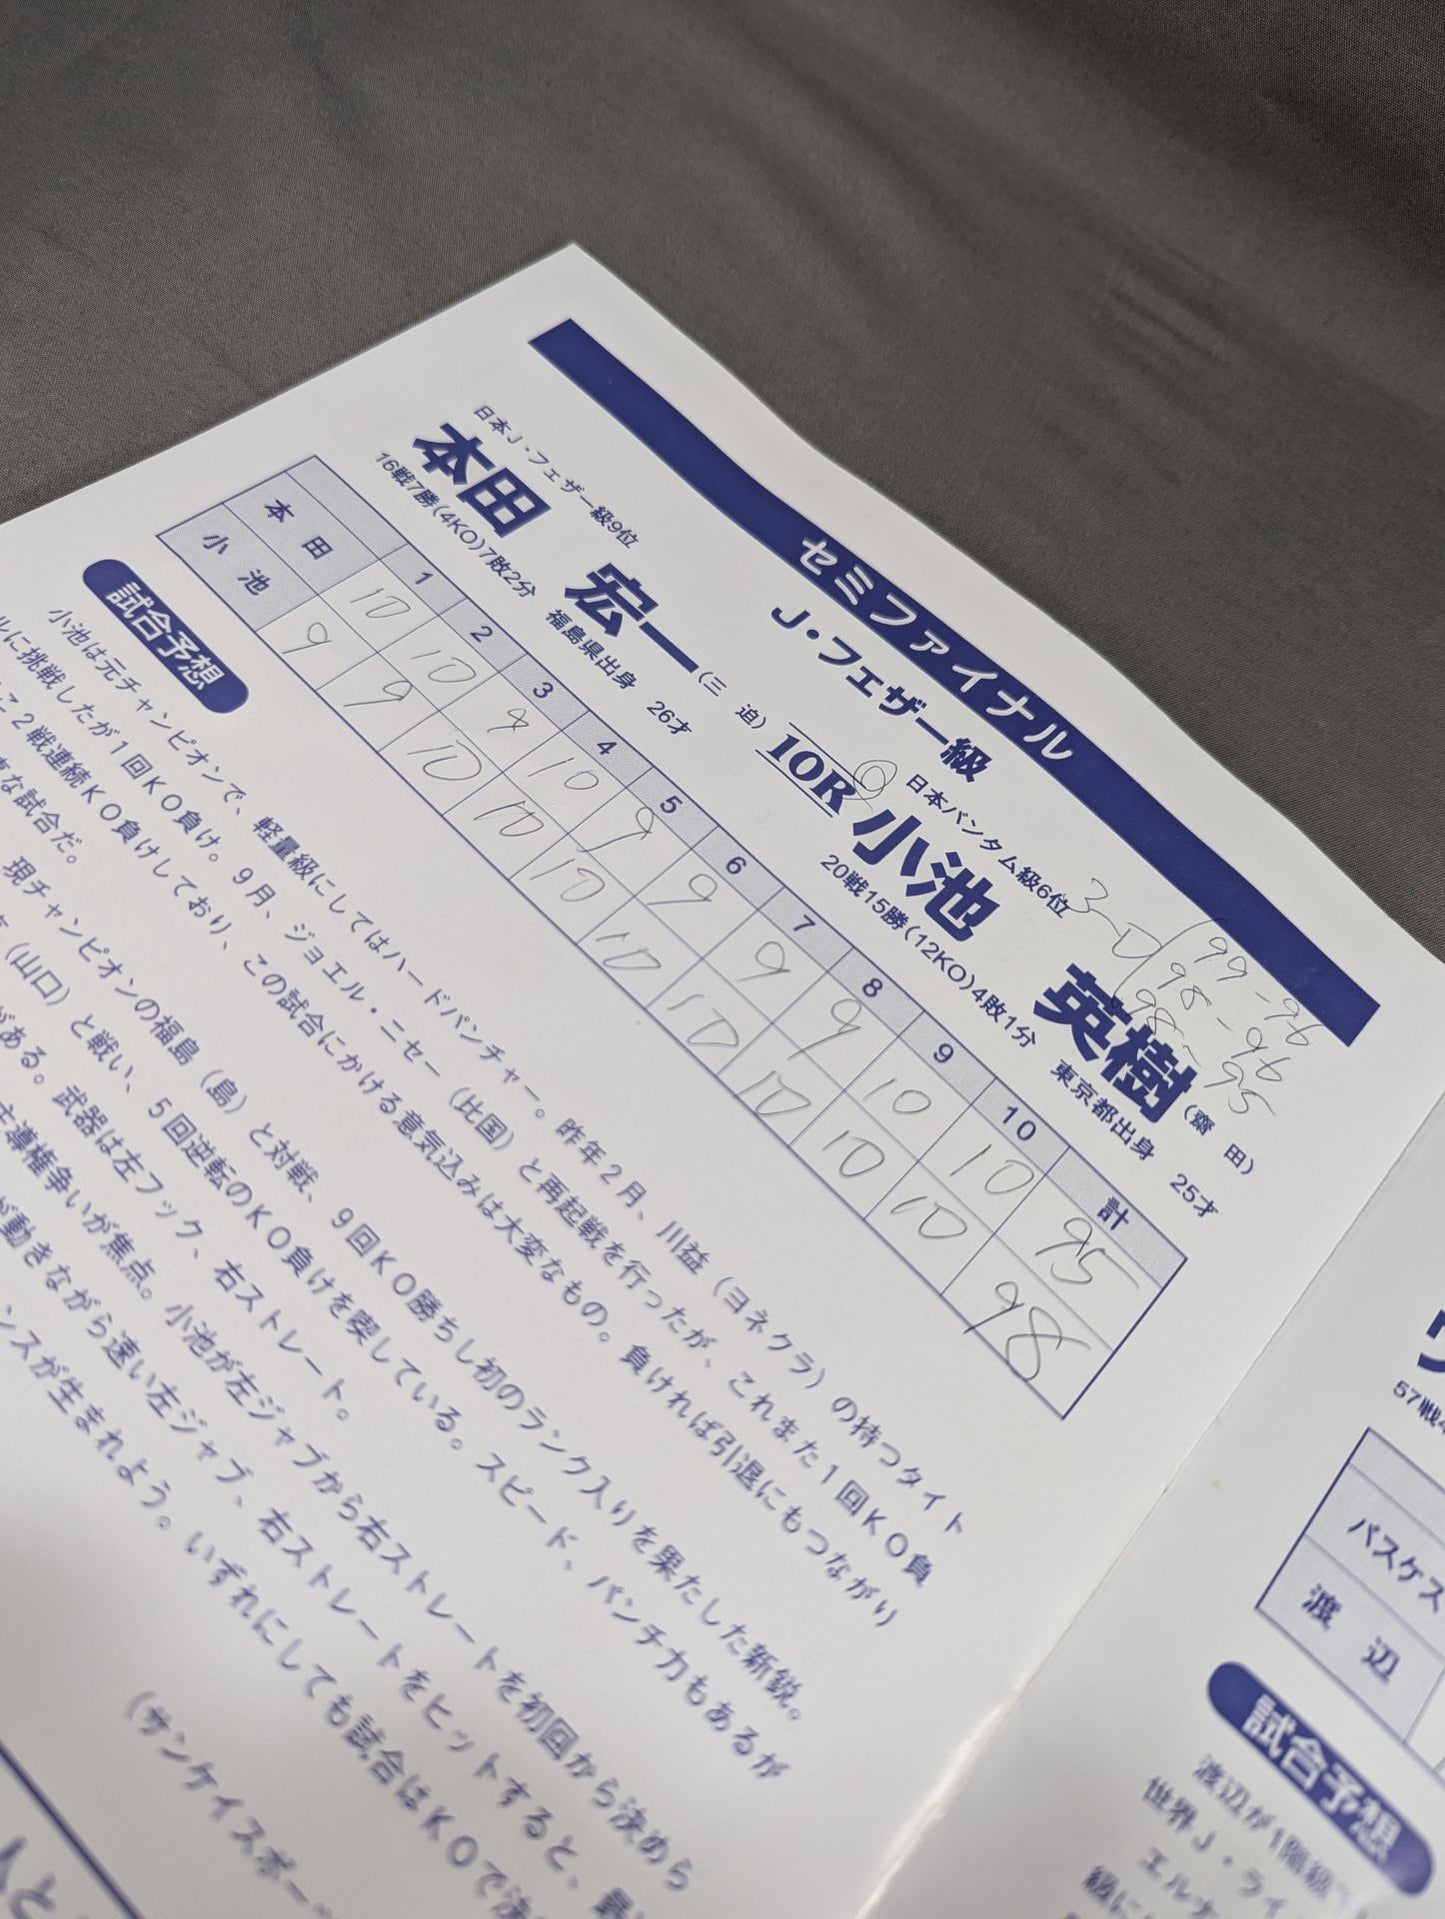 セミファイナル
J・フェザー級
日本J・フェザー級9位
本田 宏一(三 迫)
16戦7勝(4KO)7敗2分 福島県出身 26才
10R
日本バンタム級6位
小池 英樹(齋 田)
20戦15勝(12KO)4敗1分 東京都出身 25才
3-0
99-96
98-96
98-95
1 2 3 4 5 6 7 8 9 10 計
本 田 10 10 9 10 9 9 9 9 10 10 95
小 池 9 9 10 10 10 10 10 10 10 10 98
試合予想
小池は元チャンピオンで、軽量級にしてはハードパンチャー。昨年2月、川益(ヨネクラ)の持つタイト
ルに挑戦したが1回KO負け。9月、ジョエル・ニセー(比国)と再起戦を行ったが、これまた1回KO負
2戦連続KO負けしており、この試合にかける意気込みは大変なもの。負ければ引退にもつながり
な試合だ。
現チャンピオンの福島(島)と対戦、9回KO勝ちし初のランク入りを果たした新鋭。
(山口)と戦い、5回逆転のKO負けを喫している。スピード、パンチ力もあるが
がある。武器は左フック、右ストレート。
主導権争いが焦点。小池が左ジャブから右ストレートを初回から決めら
が動きながら速い左ジャブ、右ストレートをヒットすると、
ンスが生まれよう。いずれにしても試合はKOで決
(サンケイスポー
57戦
バスケス
渡 辺
試合予想
渡辺が1階級
世界J・ライ
エルナ
級に